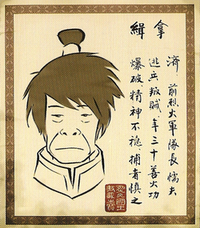 緝拿
濟前烈火軍隊長懦夫
逃兵叛賊年三十善火功
爆破精神不穩捕者慎之